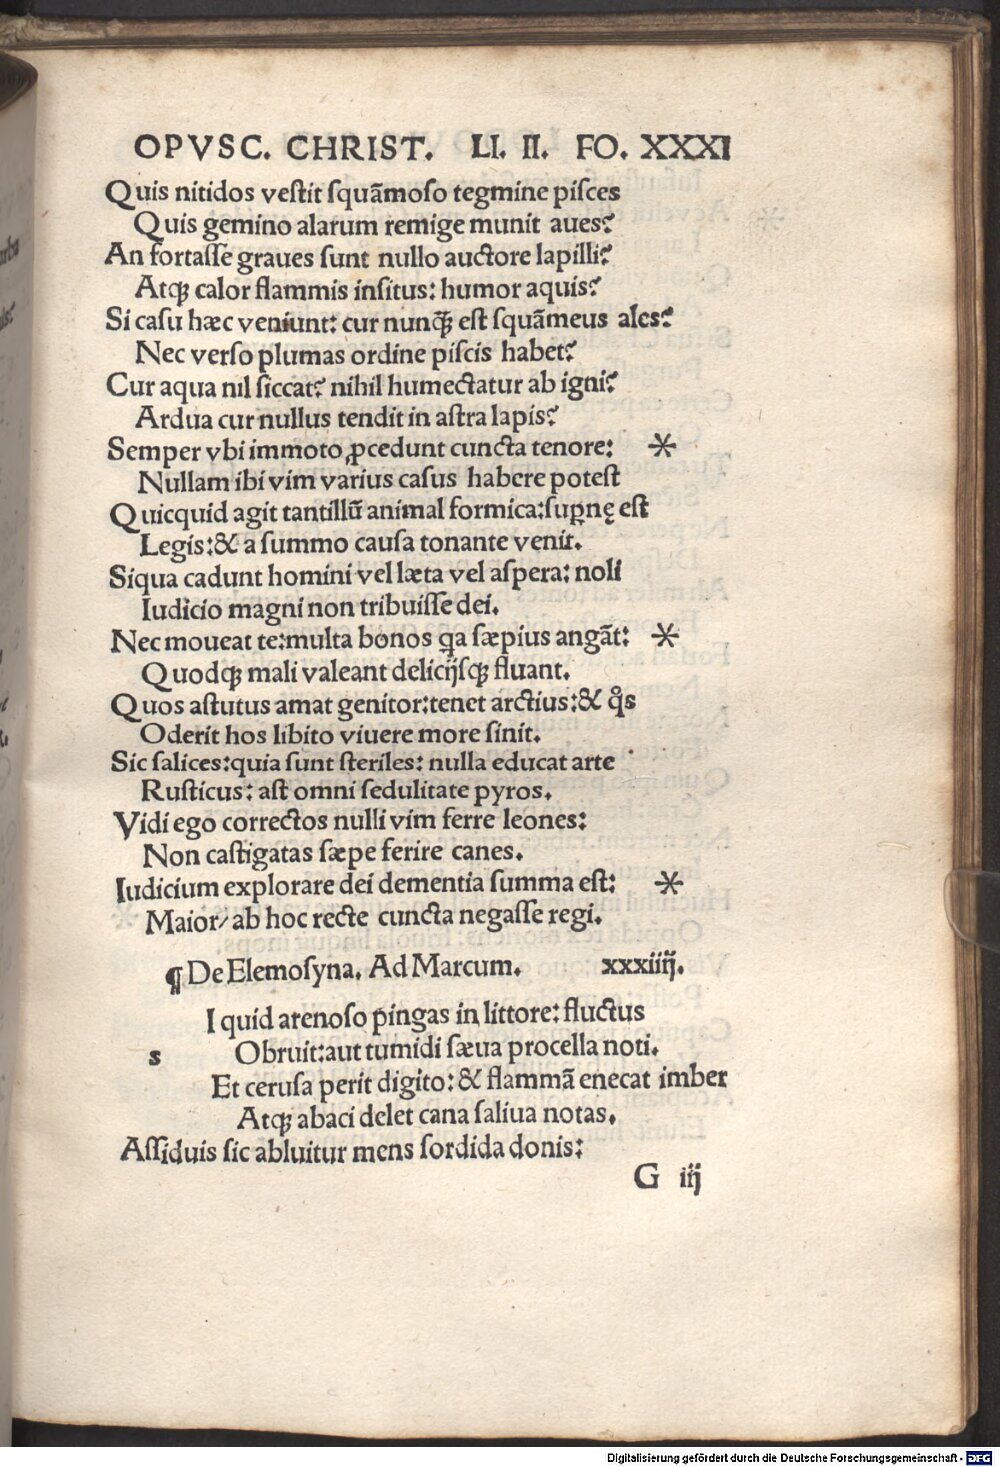 OPVSC. CHRIST. LI. II. FO. XXXI
Quis nitidos veſtit ſquāmoſo tegmine piſces
Quis gemino alarum remige munit aues?
An fortaſſe graues ſunt nullo auctore lapilli?
Atqꝫ calor flammis inſitus: humor aquis?
Si caſu hæc veniunt: cur nunqꝫ̄ eſt ſquāmeus ales?
Nec verſo plumas ordine piſcis habet?
Cur aqua nil ſiccat? nihil humectatur ab igni?
Ardua cur nullus tendit in aſtra lapis?
Semper vbi immoto ꝓcedunt cuncta tenore: *
Nullam ibi vim varius caſus habere poteſt
Quicquid agit tantillū animal formica: ſuꝑnę eſt
Legis: & a ſummo cauſa tonante venit.
Siqua cadunt homini vel læta vel aſpera: noli
Iudicio magni non tribuiſſe dei.
Nec moueat te: multa bonos ꝗa ſæpius angāt: *
Quodqꝫ mali valeant delicijſqꝫ fluant.
Quos aſtutus amat genitor: tenet arctius: & qͦs
Oderit hos libito viuere more ſinit.
Sic ſalices: quia ſunt ſteriles: nulla educat arte
Ruſticus: aſt omni ſedulitate pyros.
Vidi ego correctos nulli vim ferre leones:
Non caſtigatas ſæpe ferire canes.
Iudicium explorare dei dementia ſumma eſt: *
Maior/ ab hoc recte cuncta negaſſe regi.
¶ De Elemoſyna. Ad Marcum. xxxiiij.
I quid arenoſo pingas in littore: fluctus
s Obruit: aut tumidi ſæua procella noti.
Et ceruſa perit digito: & flammā enecat imber
Atqꝫ abaci delet cana ſaliua notas.
Aſſiduis ſic abluitur mens ſordida donis:
G iij
Digitalisierung gefördert durch die Deutsche Forschungsgemeinschaft - DFG